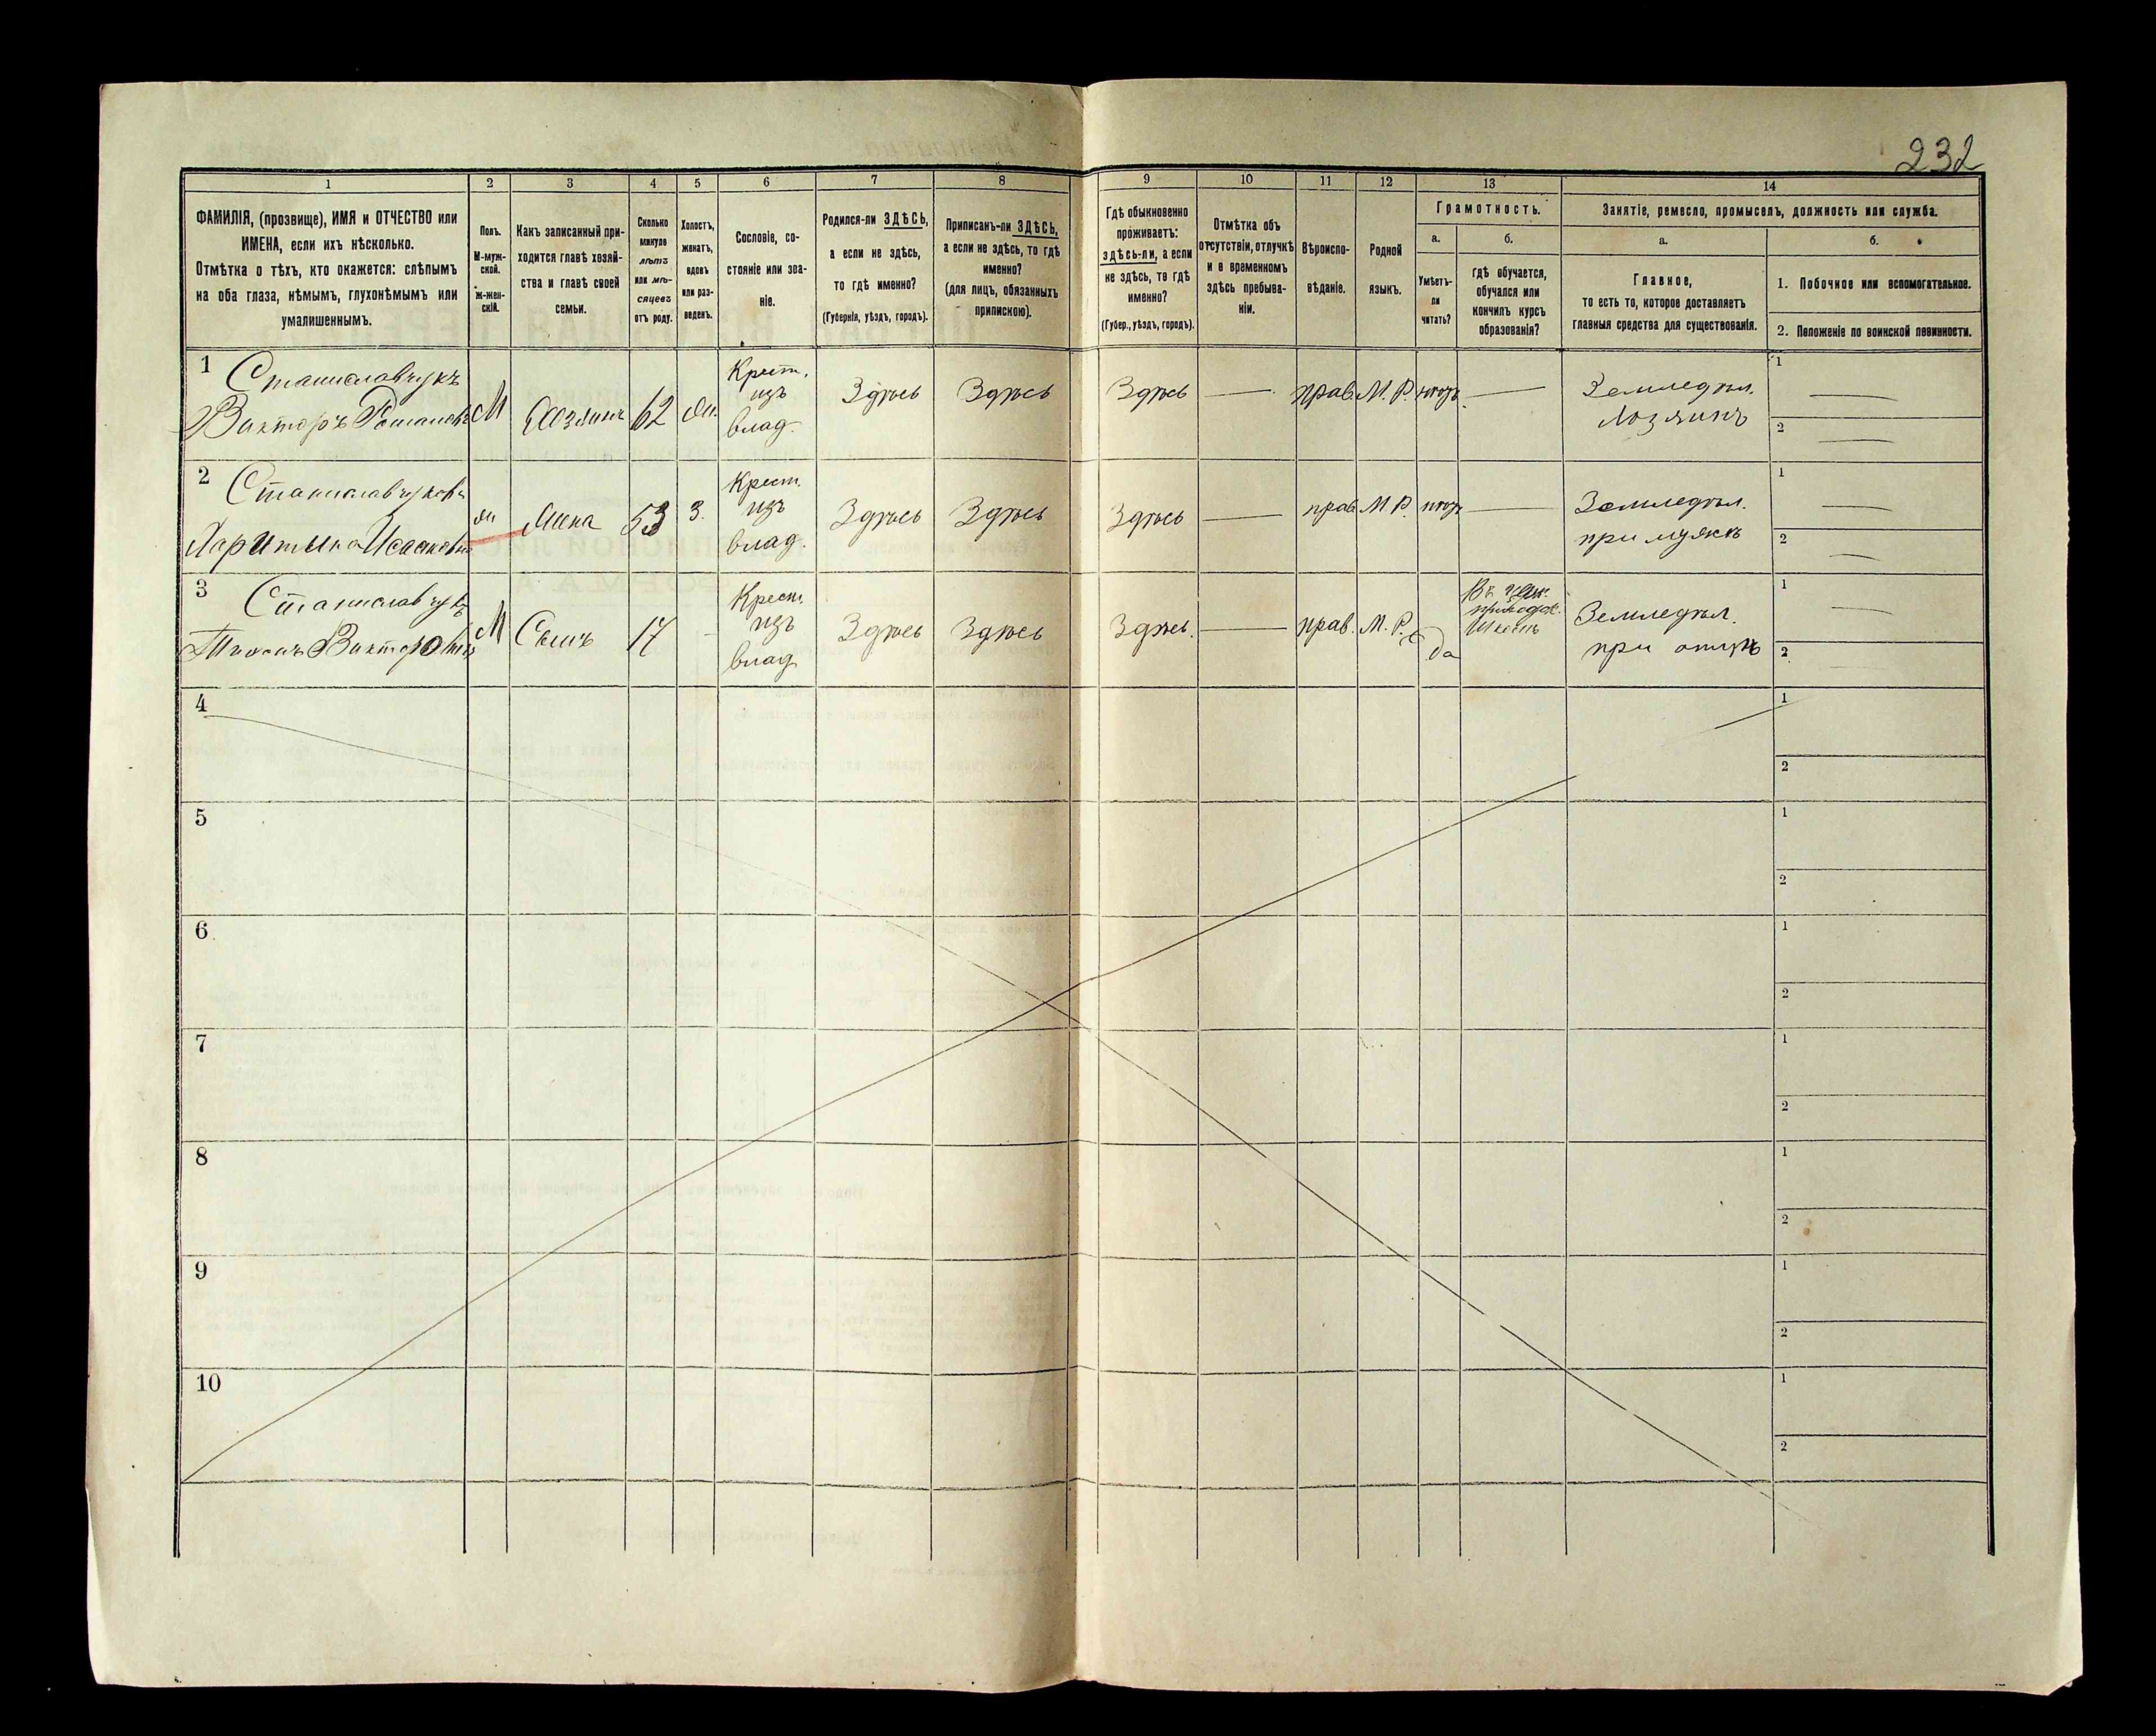 232
1 2 3 4 5 6 7 8 9 10 11 12 13 14
ФАМИЛІЯ, (прозвище), ИМЯ и ОТЧЕСТВО или
ИМЕНА, если ихъ нѣсколько.
Отмѣтка о тѣхъ, кто окажется: слѣпымъ
на оба глаза, нѣмымъ, глухонѣмымъ или
умалишеннымъ.
Полъ.
М-муж-
ской.
ж-жен-
скій.
Какъ записанный при-
ходится главѣ хозяй-
ства и главѣ своей
семьи.
Сколько
минуло
лѣтъ
или мѣ-
сяцевъ
отъ роду.
Холостъ,
женатъ,
вдовъ
или раз-
веденъ.
Сословіе, со-
стояніе или зва-
ніе.
Родился-ли ЗДѢСЬ,
а если не здѣсь,
то гдѣ именно?
(Губернія, уѣздъ, городъ).
Приписанъ-ли ЗДѢСЬ,
а если не здѣсь, то гдѣ
именно?
(для лицъ, обязанныхъ
припискою).
Гдѣ обыкновенно
проживаетъ:
здѣсь-ли, а если
не здѣсь, то гдѣ
именно?
(Губер., уѣздъ, городъ).
Отмѣтка объ
отсутствіи, отлучкѣ
и о временномъ
здѣсь пребыва-
ніи.
Вѣроиспо-
вѣданіе.
Родной
языкъ.
Грамотность.
а.
Умѣетъ-
ли
читать?
б.
гдѣ обучается,
обучался или
кончилъ курсъ
образованія?
Занятіе, ремесло, промыселъ, должность или служба.
а.
Главное,
то есть то, которое доставляетъ
главныя средства для существованія.
б.
1. Побочное или вспомогательное.
2. Положеніе по воинской повинности.
1 Станиславчукъ
Викторъ Романовъ
М Хозяинъ 62 Ж.
Крест.
изъ
влад.
Здѣсь Здѣсь Здѣсь — прав. М. Р. нѣтъ —
Земледѣл.
Хозяинъ
1 —
2 —
2 Станиславчукова
Харитына Исааковна
Ж Жена 53 З.
Крест.
изъ
влад.
Здѣсь Здѣсь Здѣсь — прав. М. Р. нѣтъ —
Земледѣл.
при мужѣ
1 —
2 —
3 Станиславчукъ
Викторовъ
М Сынъ 17 -
Крест.
изъ
влад.
Здѣсь Здѣсь Здѣсь. — прав. М. Р. да
Въ
приход.
Школѣ
Земледѣл.
при отцѣ
1 —
2
4
1
2
5
1
2
6
1
2
7
1
2
8
1
2
9
1
2
10
1
2